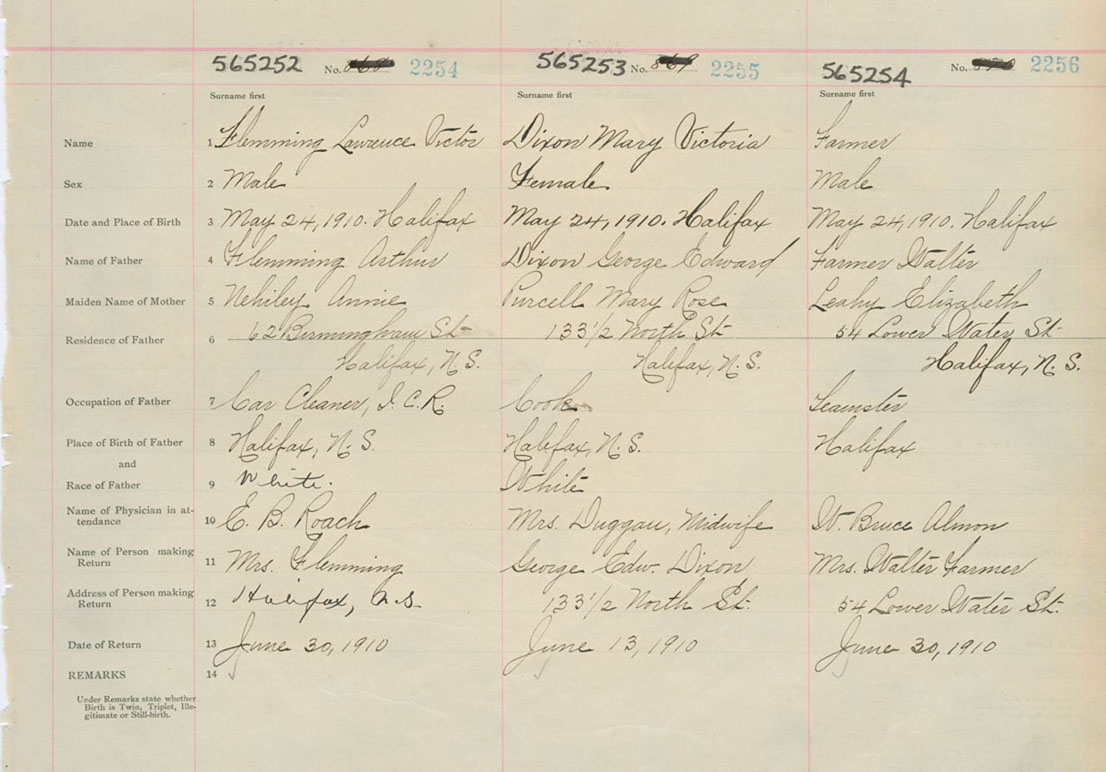 565252 No. 868 2254 565253 No. 869 2255 565254 No. 870 2256
Surname first Surname first Surname first
Name 1 Flemming Lawrence Victor Dixon Mary Victoria Farmer
Sex 2 Male Female Male
Date and Place of Birth 3 May 24, 1910. Halifax May 24, 1910. Halifax May 24, 1910. Halifax
Name of Father 4 Flemming Arthur Dixon George Edward Farmer Walter
Maiden Name of Mother 5 Nehiley Annie Purcell Mary Rose Leahy Elizabeth
Residence of Father 6 62 Birmingham St 133 1/2 North St 54 Lower Water St
Halifax, N.S. Halifax, N.S. Halifax, N.S.
Occupation of Father 7 Car Cleaner, I.C.R. Cook Teamster
Place of Birth of Father 8 Halifax, N.S. Halifax, N.S. Halifax
and
Race of Father 9 White. White
Name of Physician in at-
tendance 10 E. B. Roach Mrs. Duggan, Midwife W. Bruce Almon
Name of Person making
Return 11 Mrs. Flemming George Edw. Dixon Mrs. Walter Farmer
Address of Person making
Return 12 Halifax, N.S. 133 1/2 North St. 54 Lower Water St.
Date of Return 13 June 30, 1910 June 13, 1910 June 30, 1910
REMARKS 14
Under Remarks state whether
Birth is Twin, Triplet, Ille-
gitimate or Still-birth.